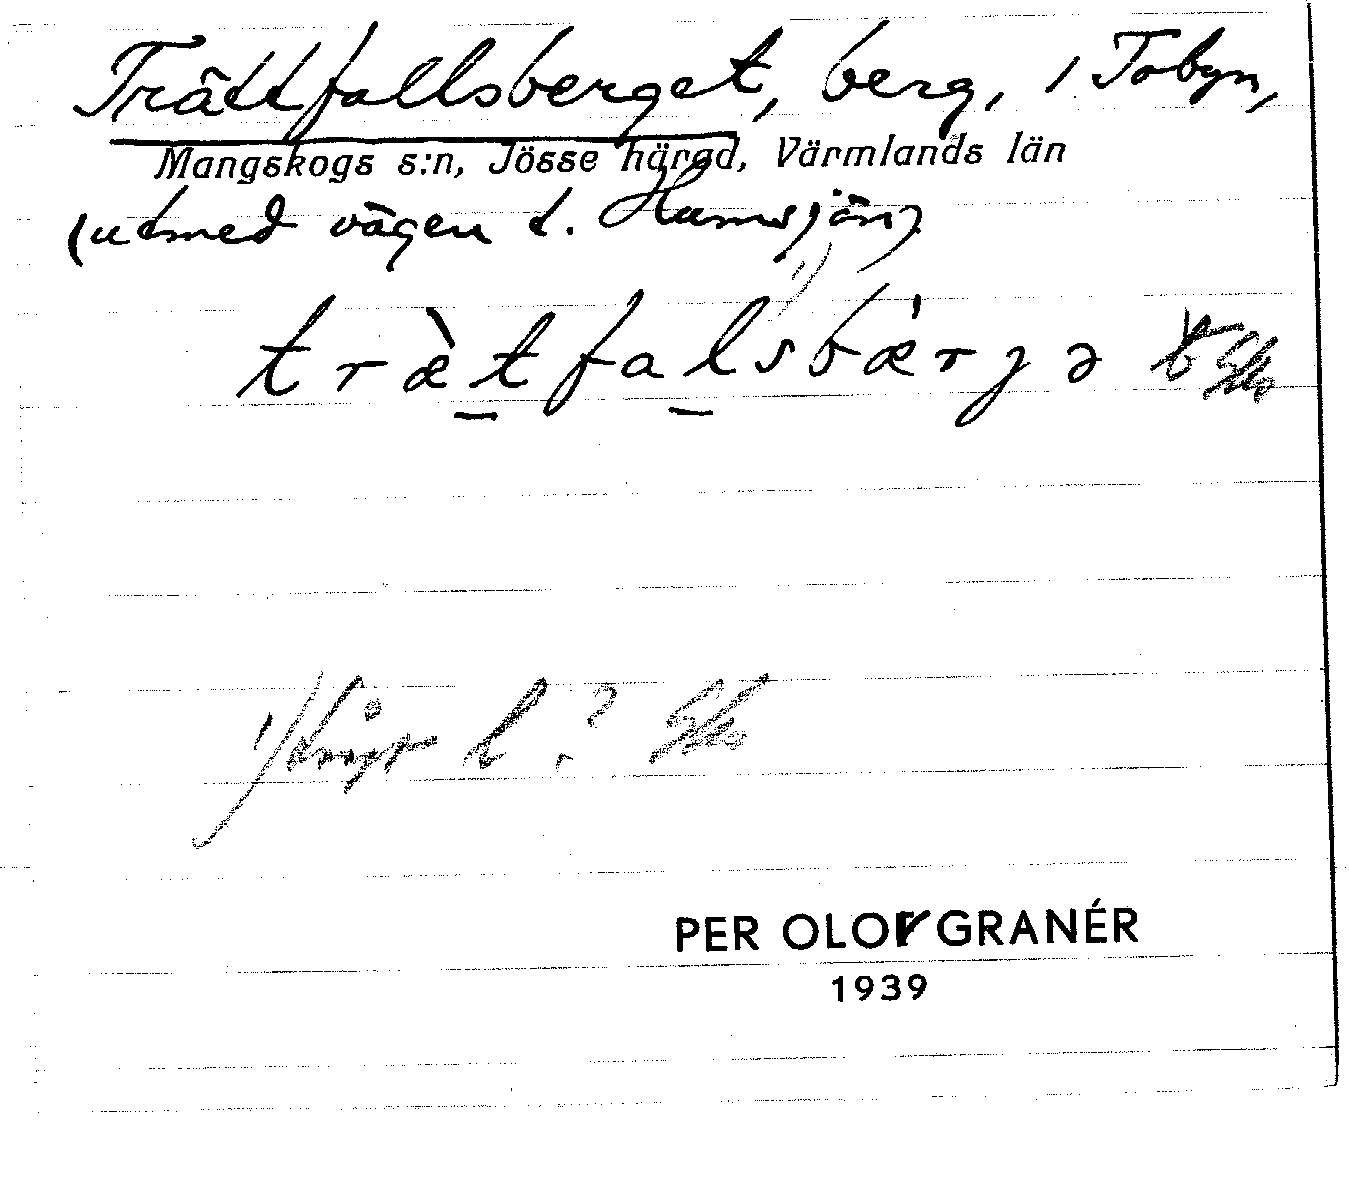 Trättfallsberget, berg, i Tobyn,
Mangskogs s:n, Jösse härad, Värmlands län
(utmed vägen t. Humsjön).
træ̀tfalsbæ̍rjə
1)
1) långt l.?
PER OLOF GRANÉR
1939